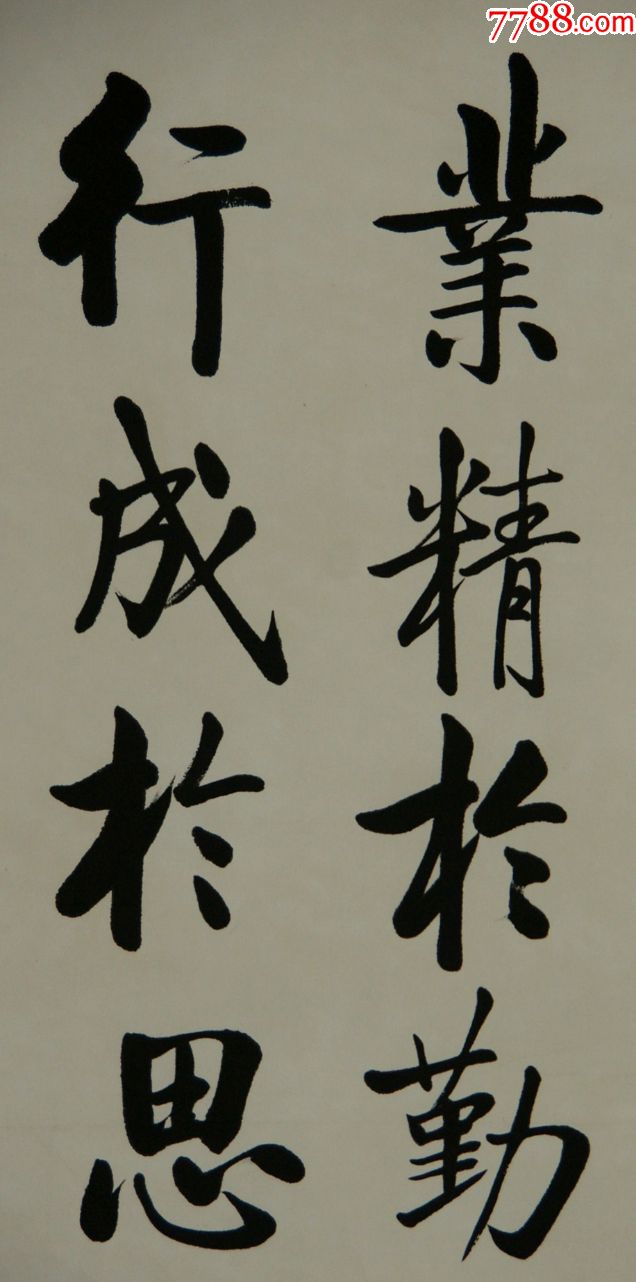 7788.com
業精於勤
行成於思